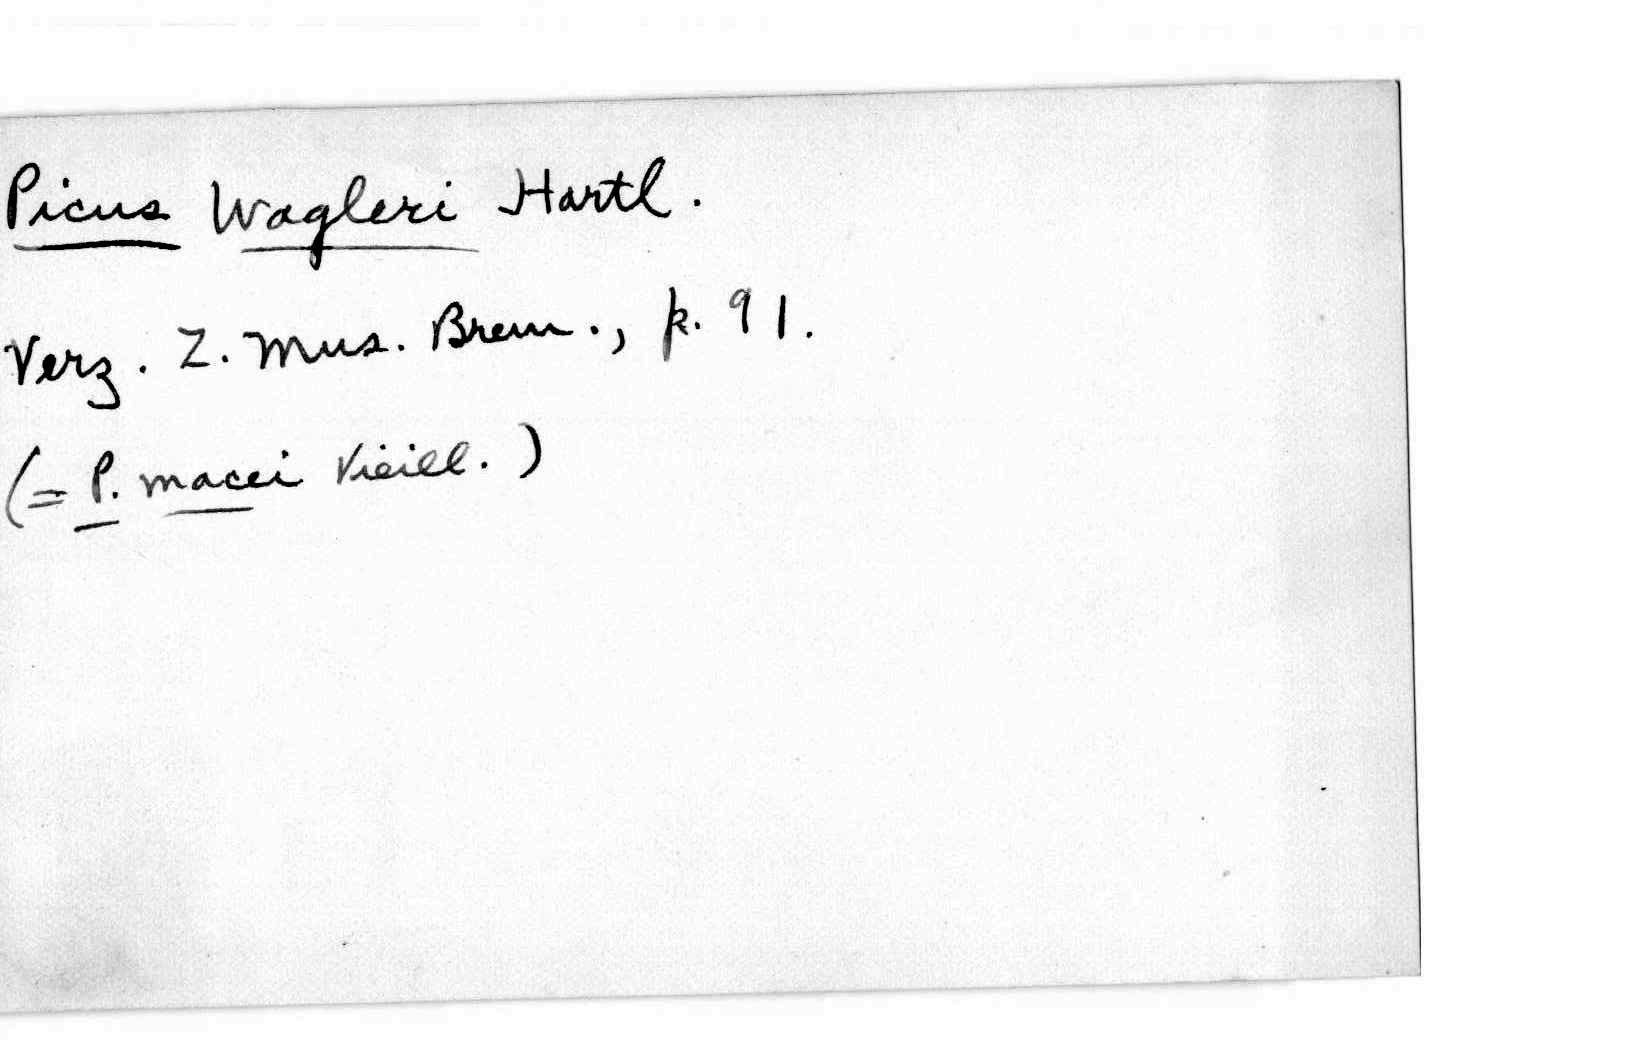 Picus Wagleri Hartl.
Verz. Z. Mus. Brem., p. 91.
(= P. macei Vieill.)